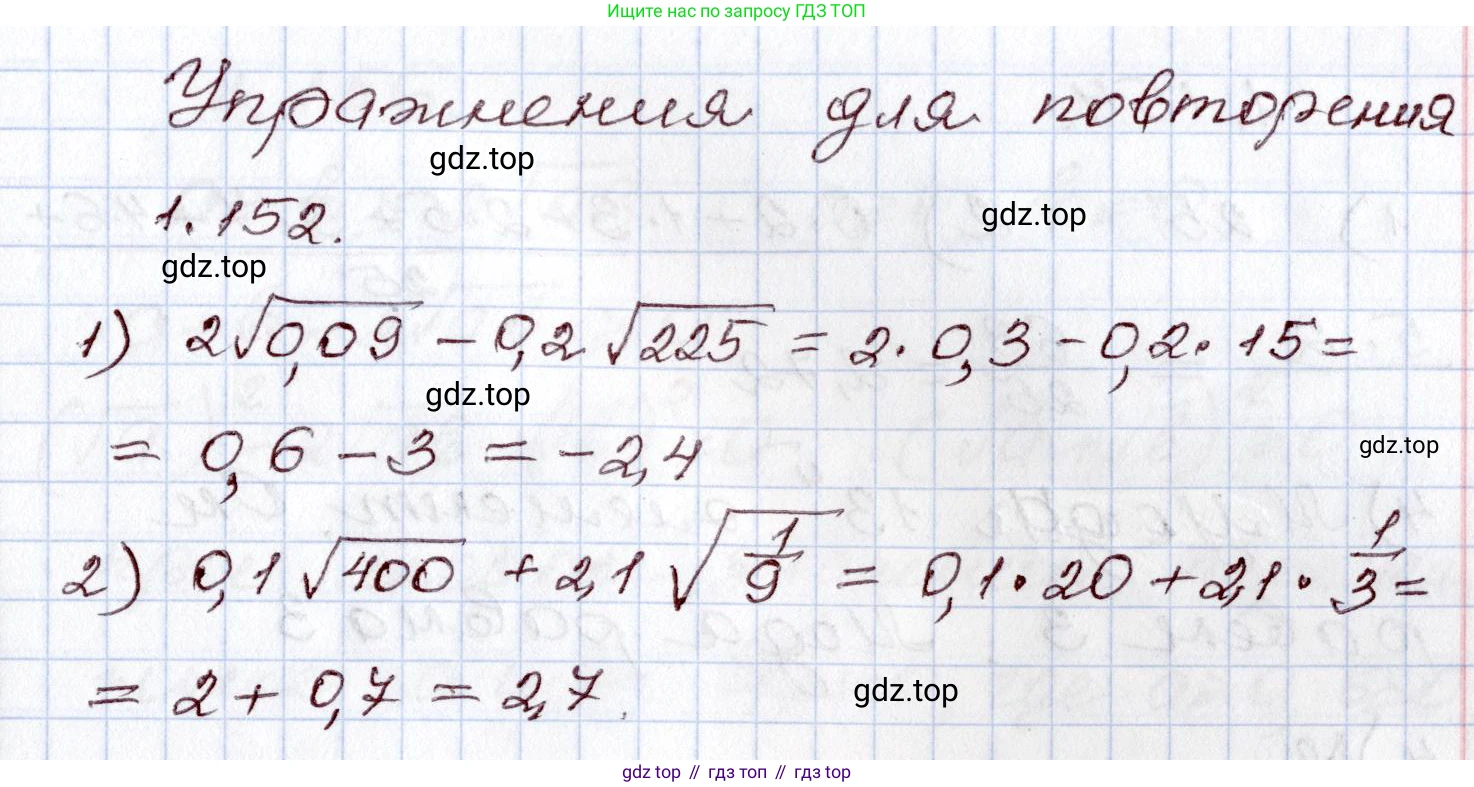 Ищите нас по запросу ГДЗ ТОП
Упражнения для повторения
gdz.top
1.152.
gdz.top
gdz.top
1) 2√0,09 − 0,2 √225 = 2 · 0,3 − 0,2 · 15 =
gdz.top
= 0,6 − 3 = −2,4
gdz.top
2) 0,1 √400 + 2,1 √(1/9) = 0,1 · 20 + 2,1 · 1/3 =
= 2 + 0,7 = 2,7.
gdz.top
gdz top // гдз топ // gdz top